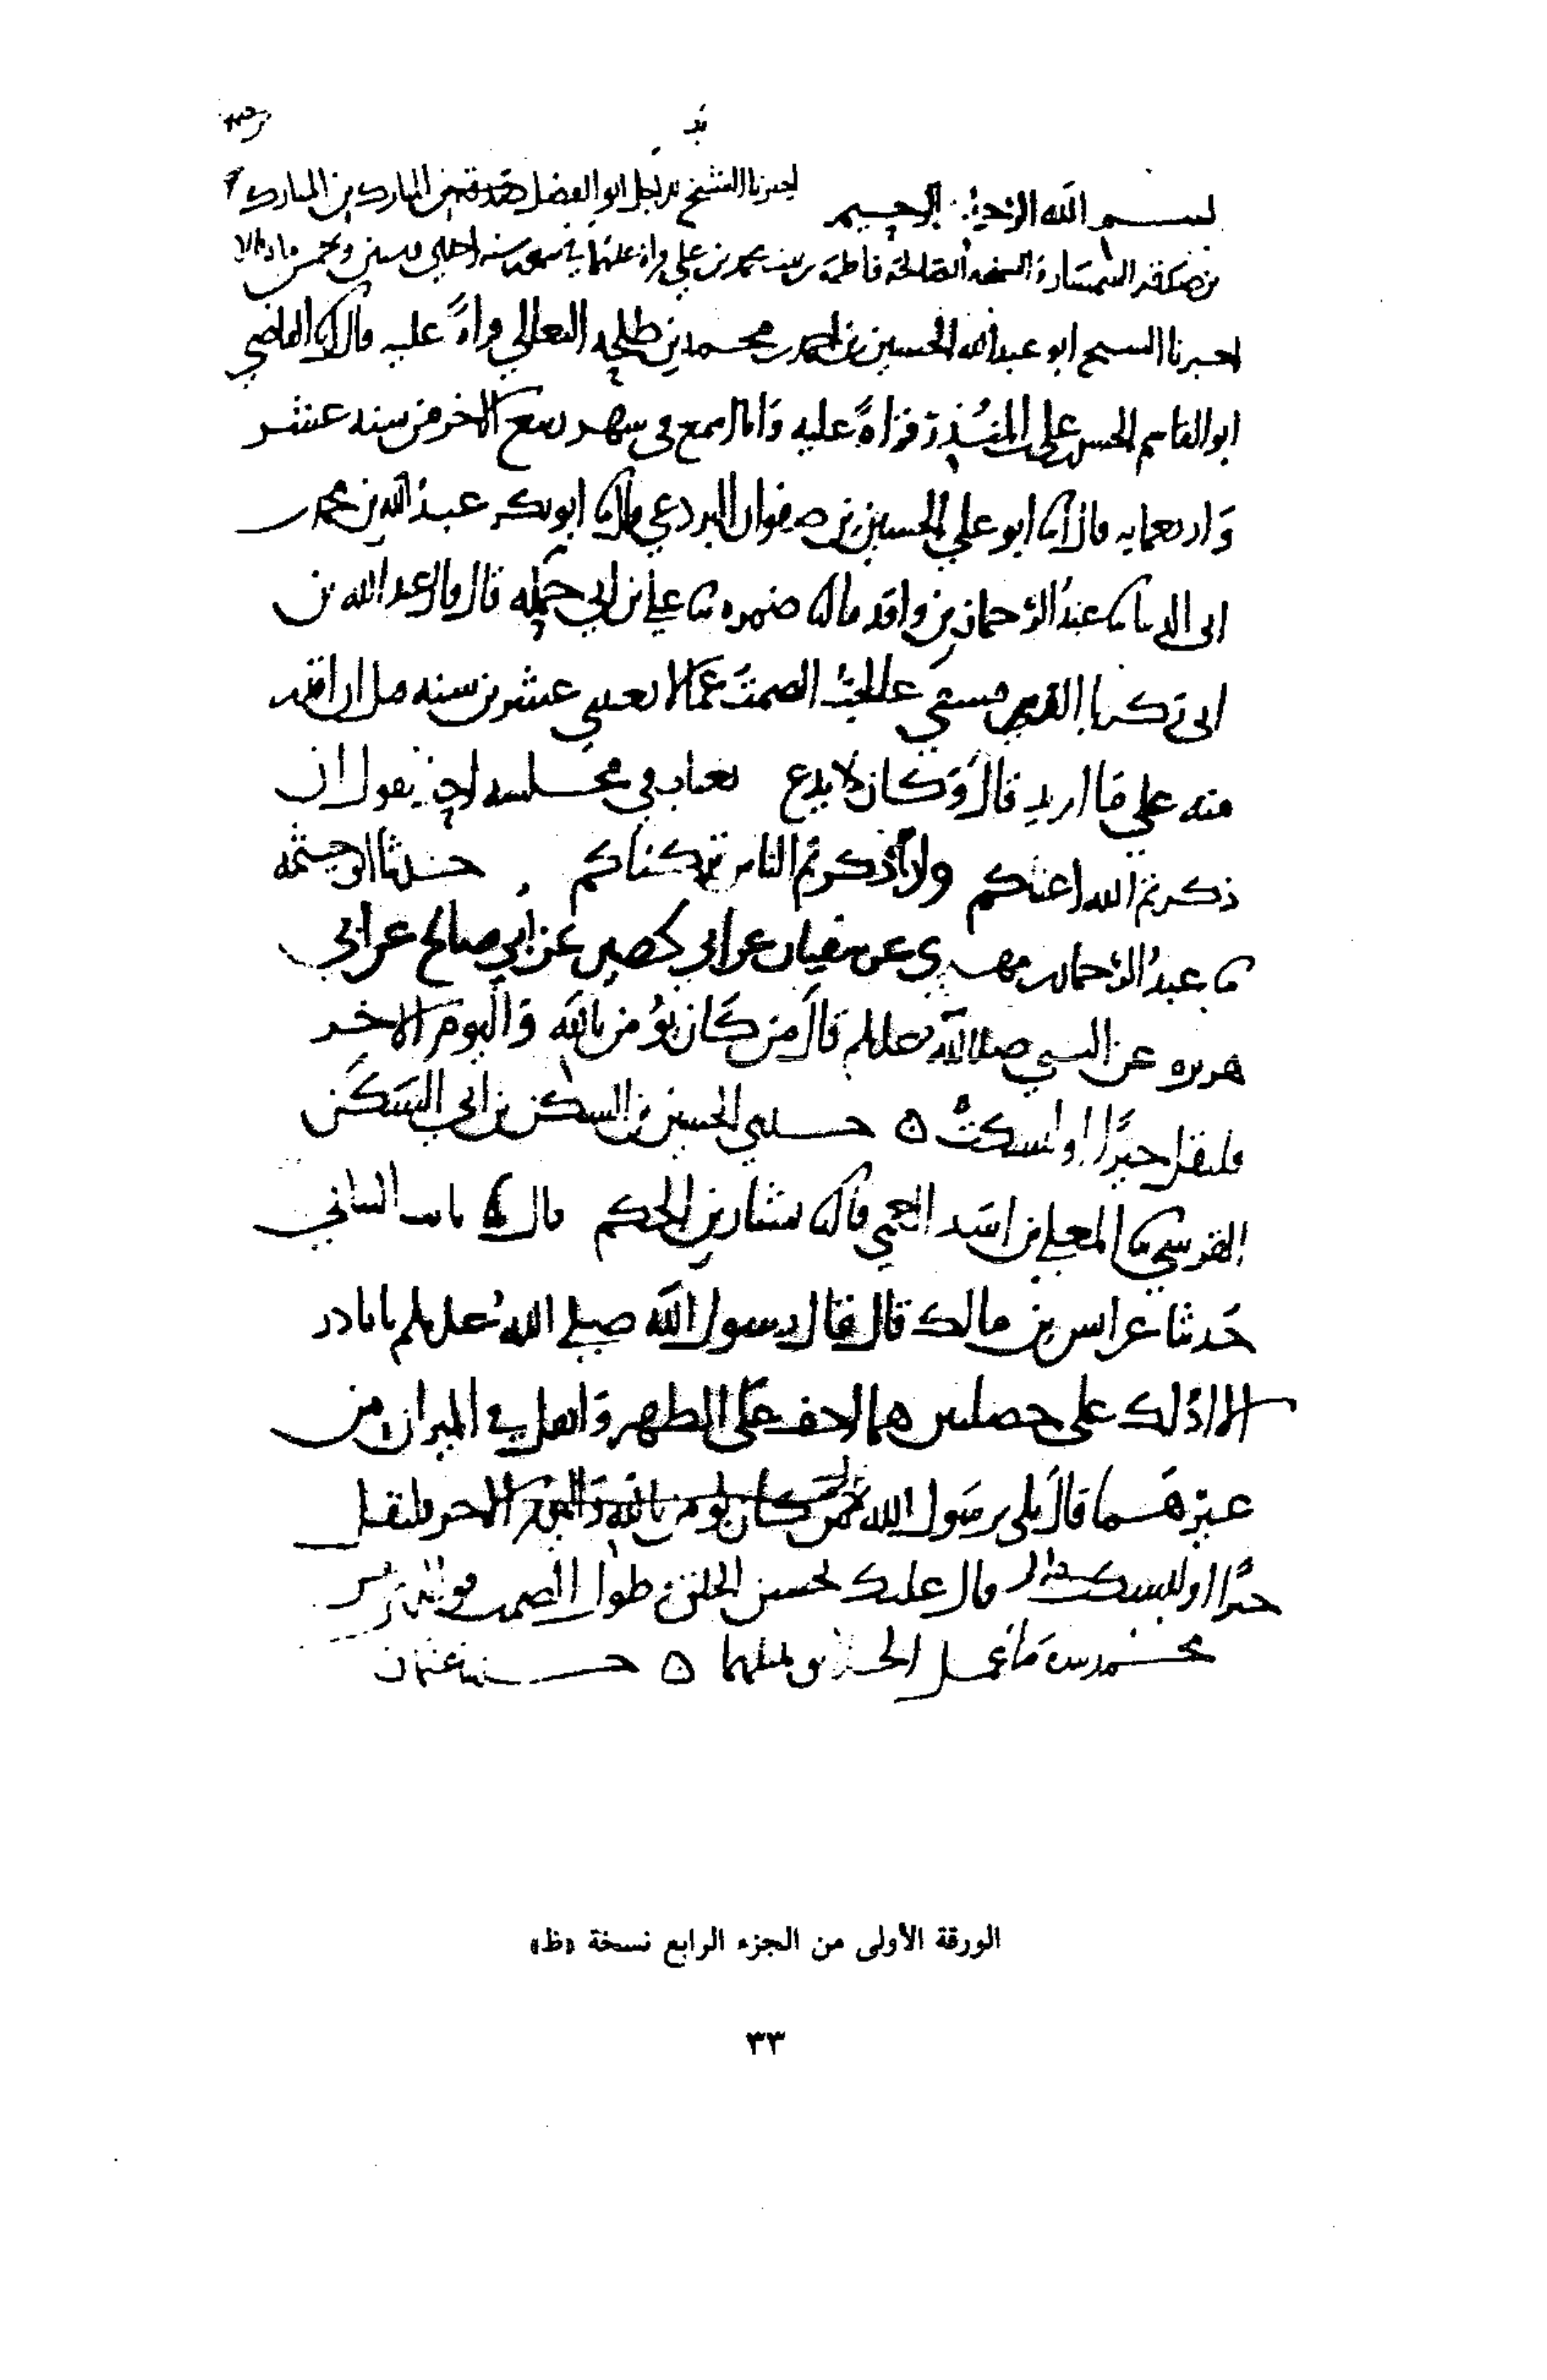 بسم الله الرحمن الرحيم اخبرنا الشيخ ابو الفضل بن المبارك بن المبارك
الصالحة فاطمة بنت محمد بن علي
اخبرنا الشيخ ابو عبد الله الحسين بن احمد بن محمد بن طلحة النعالي قراءة عليه قال انا القاضي
ابو القاسم الحسن بن علي بن المنذر قراءة عليه وانا اسمع في شهر ربيع الاخر من سنه عشر
واربعمايه قال انا ابو علي الحسين بن صفوان البردعي قال نا ابو بكر عبد الله بن محمد بن
ابي الدنيا نا عبد الرحمان بن واقد قال نا ضمره نا علي بن ابي حمله قال قال عبد الله بن
ابي زكريا الصمت عما لا يعنيني عشرين سنه قبل ان اقدر
منه على ما اريد قال وكان لا يدع يغتاب في مجلسه احد يقول ان
ذكرتم الله اعناكم وان ذكرتم الناس تركناكم حدثنا ابو خيثمه
نا عبد الرحمان بن مهدي عن سفيان عن ابي حصين عن أبي صالح عن ابي
هريره عن النبي صلى الله عليه وسلم قال من كان يؤمن بالله واليوم الاخر
فليقل خيرا او ليسكت ٥ حدثني الحسين بن السكن بن ابي السكن
القرشي نا المعلى بن اسد العمي قال نا بشار بن الحكم قال نا ثابت البناني
حدثنا عن انس بن مالك قال قال رسول الله صلى الله عليه وسلم يابا ذر
الا ادلك على خصلتين هما اخف على الظهر واثقل في الميزان من
غيرهما قال بلى يرسول الله من كان يومن بالله واليوم الاخر فليقل
خيرا او ليسكت قال عليك بحسن الخلق وطول الصمت فوالذي نفس
محمد بيده ما عمل الخلائق بمثلهما ٥ حدثنا عثمان
الورقة الأولى من الجزء الرابع نسخة «ظ»
٣٣